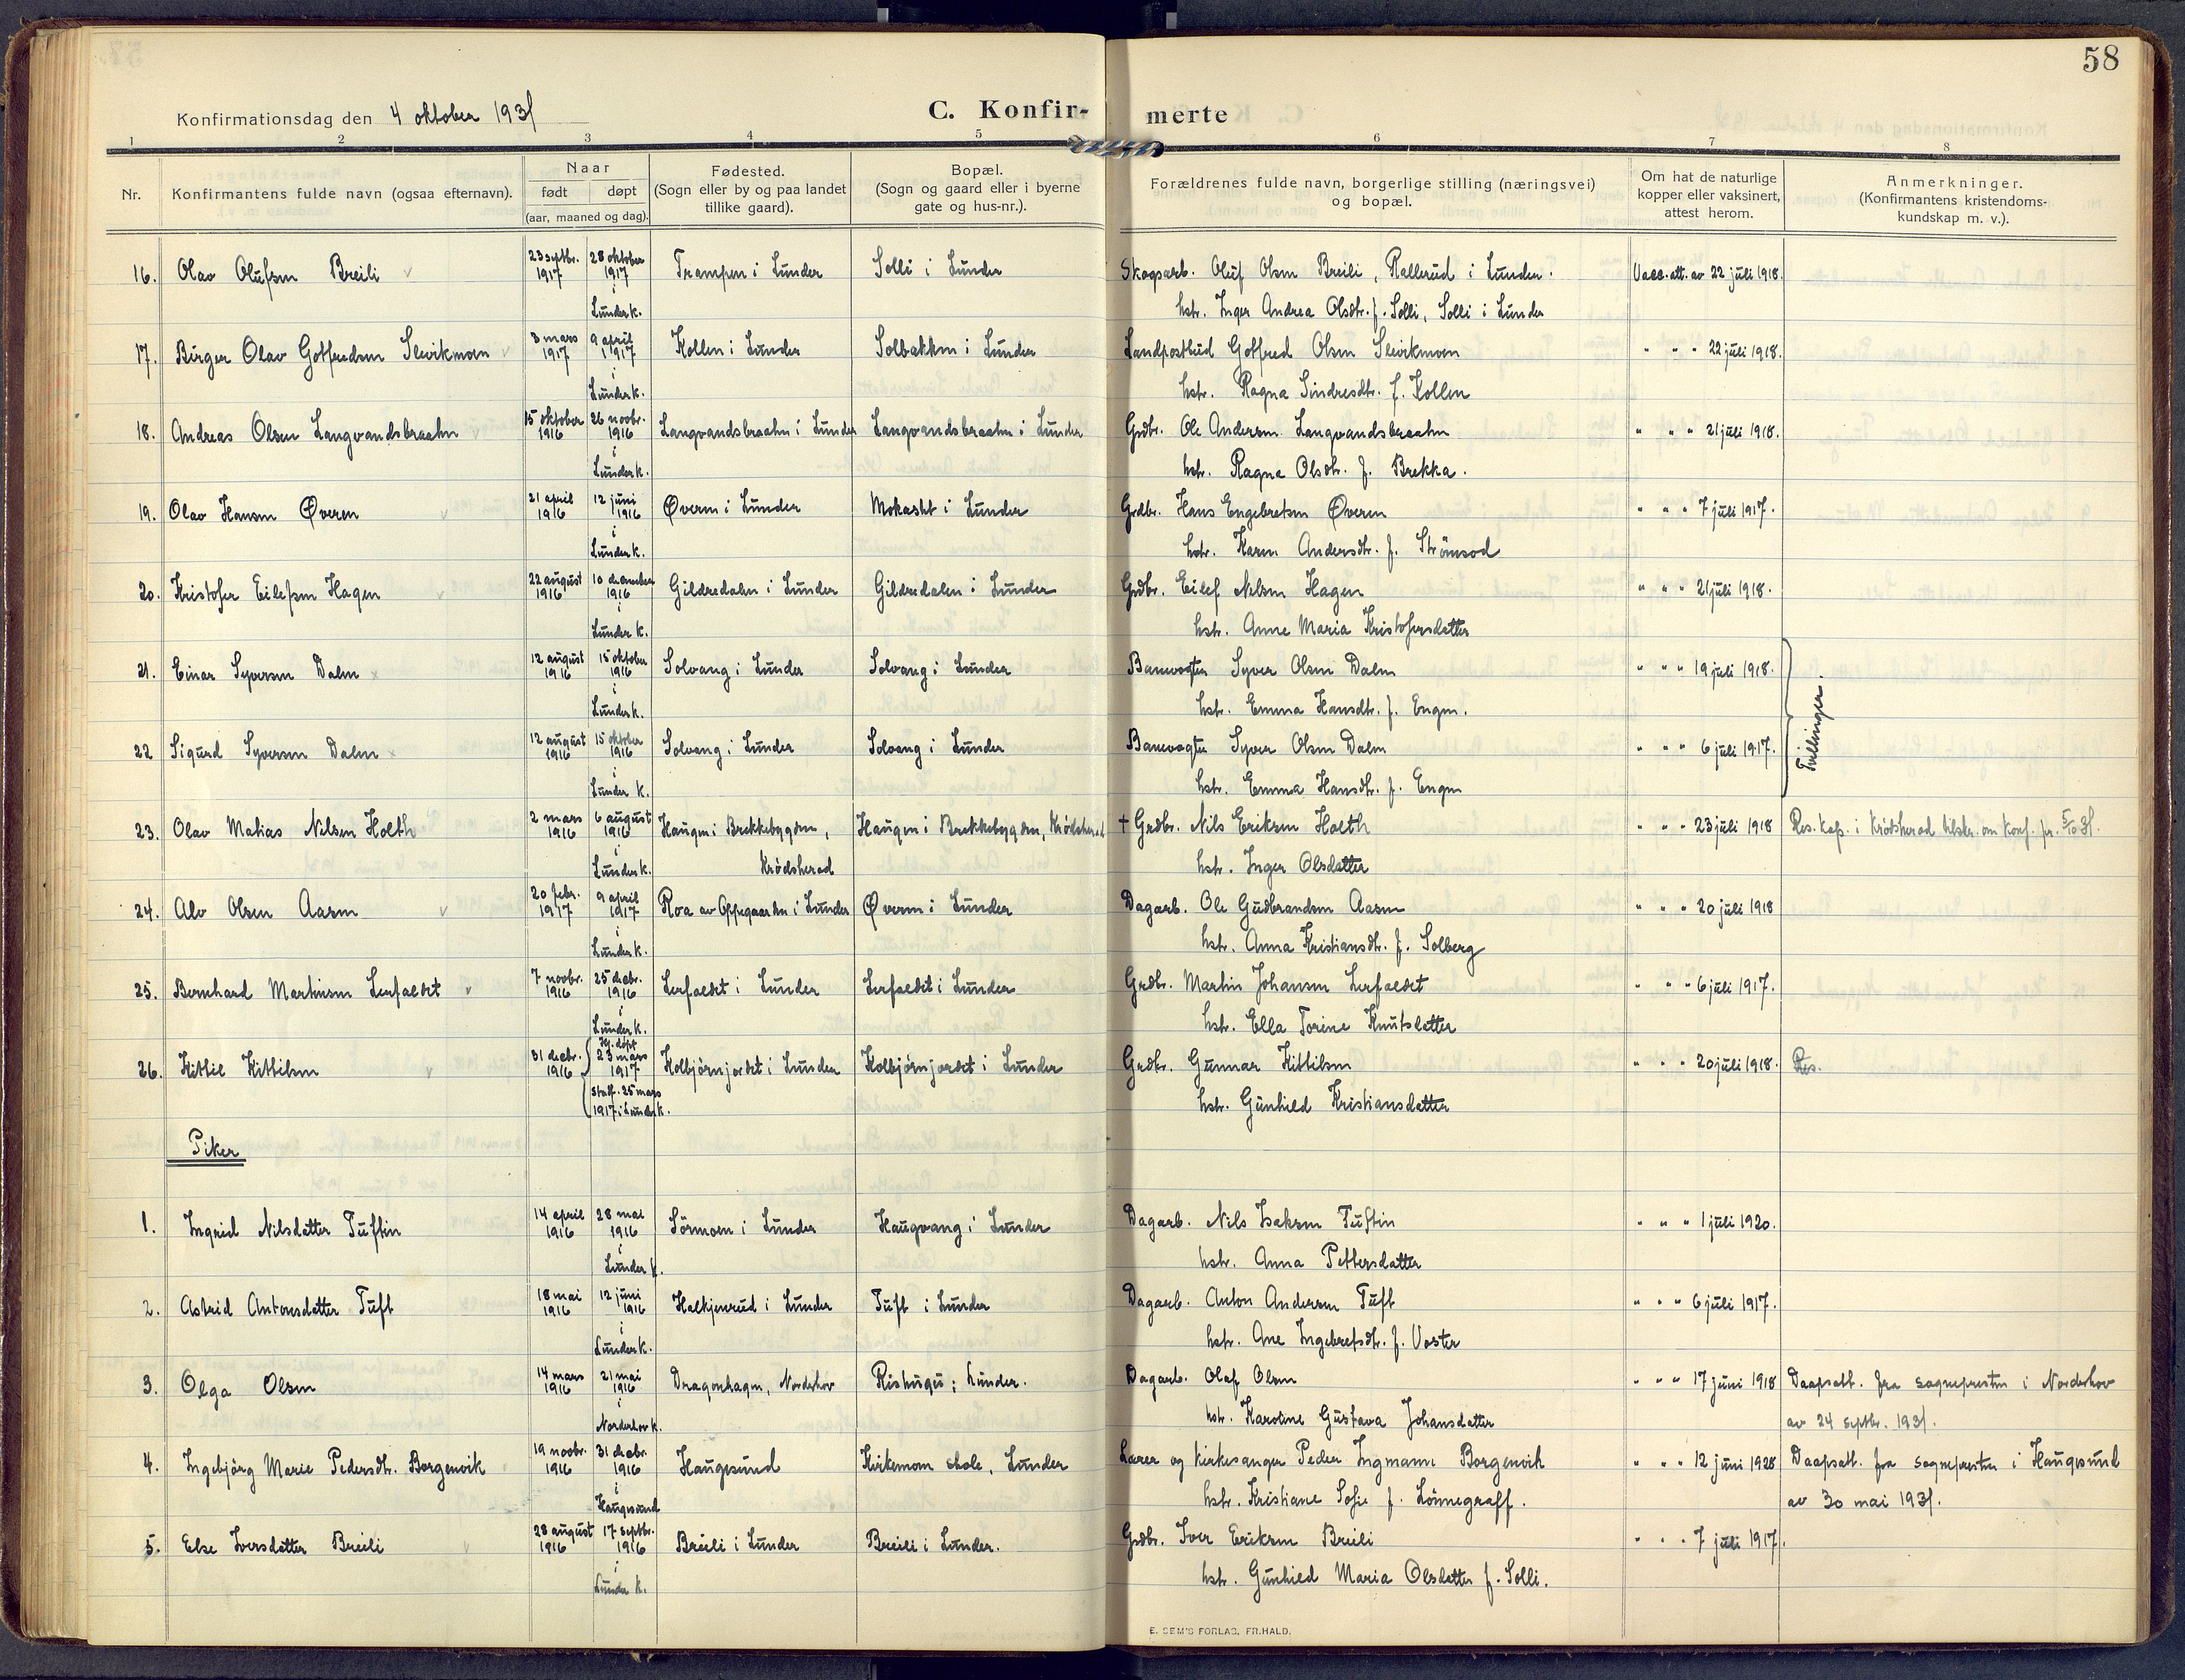 58
Konfirmationsdag den 4 oktober 1931
C. Konfirmerte
1 2 3 4 5 6 7 8
Nr. Konfirmantens fulde navn (ogsaa efternavn). Naar født døpt (aar, maaned og dag). Fødested. (Sogn eller by og paa landet tillike gaard). Bopæl. (Sogn og gaard eller i byerne gate og hus-nr.). Forældrenes fulde navn, borgerlige stilling (næringsvei) og bopæl. Om hat de naturlige kopper eller vaksinert, attest herom. Anmerkninger. (Konfirmantens kristendomskundskap m. v.).
16. Olav Olufsen Breili 23 septbr. 1917 28 oktober 1917 i Lunder k. Trampen i Lunder Solli i Lunder Skogsarb. Oluf Olsen Breili, Rallerud i Lunder. Vacc. att. av 22 juli 1918.
hstr. Inger Andrea Olsdtr. f. Solli, Solli i Lunder
17. Birger Olav Gotfredsen Slevikmoen 3 mars 1917 9 april 1917 i Lunder k. Kollen i Lunder Solbakken i Lunder Landpostbud Gotfred Olsen Slevikmoen " " " 22 juli 1918.
hstr. Ragna Sindresdtr. f. Kollen
18. Andreas Olsen Langvandsbraaten 15 oktober 1916 26 novbr. 1916 i Lunder k. Langvandsbraaten i Lunder Langvandsbraaten i Lunder Grdbr. Ole Andersen Langvandsbraaten " " " 21 juli 1918.
hstr. Ragna Olsdtr. f. Brekka.
19. Olav Hansen Øveren 21 april 1916 12 juni 1916 i Lunder k. Øveren i Lunder Mokastet i Lunder Grdbr. Hans Engebretsen Øveren " " " 7 juli 1917.
hstr. Karen Andersdtr. f. Strömsod
20. Kristofer Eilefsen Hagen 22 august 1916 10 december 1916 i Lunder k. Gildredalen i Lunder Gildredalen i Lunder Grdbr. Eilef Nelsen Hagen " " " 21 juli 1918.
hstr. Anne Maria Kristofersdatter
21. Einar Syversen Dalen 12 august 1916 15 oktober 1916 i Lunder k. Solvang i Lunder Solvang i Lunder Banevogter Syver Olsen Dalen " " " 19 juli 1918.
hstr. Emma Hansdtr. f. Engen.
Tvillinger.
22 Sigurd Syversen Dalen 12 august 1916 15 oktober 1916 i Lunder k. Solvang i Lunder Solvang i Lunder Banevogter Syver Olsen Dalen " " " 6 juli 1917.
hstr. Emma Hansdtr. f. Engen
23. Olav Matias Nilsen Holth 2 mars 1916 6 august 1916 i Lunder k. Haugen i Brekkebygden, Krödsherad Haugen i Brekkebygden, Krödsherad † Grdbr. Nils Eriksen Holth " " " 23 juli 1918 Res. kap. i Krödsherad tilskr. om konf. pr. 5/10 31.
hstr. Inger Olsdatter
24. Alv Olsen Aasen 20 febr. 1917 9 april 1917 i Lunder k. Roa av Oppegaarden i Lunder Øveren i Lunder Dagarb. Ole Gudbrandsen Aasen " " " 20 juli 1918
hstr. Anna Kristiansdtr. f. Solberg
25. Bernhard Martinsen Lerfaldet 7 novbr. 1916 25 decbr. 1916 i Lunder k. Lerfaldet i Lunder Lerfaldet i Lunder Grdbr. Martin Johansen Lerfaldet " " " 6 juli 1917.
hstr. Ella Torine Knutsdatter
26. Kittil Kittilsen 31 decbr. 1916 Hj. döpt 23 mars 1917 stadf. 25 mars 1917 i Lunder k. Kolbjörnjordet i Lunder Kolbjörnjordet i Lunder Grdbr. Gunnar Kittilsen " " " 20 juli 1918. Res.
hstr. Gunhild Kristiansdatter
Piker
1. Ingrid Nilsdatter Tuftin 14 april 1916 28 mai 1916 i Lunder k. Sörmoen i Lunder Haugvang i Lunder Dagarb. Nils Isaksen Tuftin " " " 1 juli 1920.
hstr. Anna Pettersdatter
2. Astrid Antonsdatter Tuft 18 mai 1916 12 juni 1916 i Lunder k. Halkjenrud i Lunder Tuft i Lunder Dagarb. Anton Andersen Tuft " " " 6 juli 1917.
hstr. Ane Ingebretsdtr. f. Vaster
3. Olga Olsen 14 mars 1916 21 mai 1916 i Norderhov k. Dragonhagen, Norderhov Rishugu i Lunder. Dagarb. Olaf Olsen " " " 17 juni 1918 Daapsatt. fra sognepresten i Norderhov
hstr. Karoline Gustava Johansdatter av 24 septbr. 1931.
4. Ingebjörg Marie Pedersdtr. Borgenvik 19 novbr. 1916 31 decbr. 1916 i Haugesund Haugesund Kirkemoen skole, Lunder Lærer og kirkesanger Peder Ingmann Borgenvik " " " 12 juni 1928 Daapsatt. fra sognepresten i Haugesund
hstr. Kristiane Sofie f. Lönnegraff. av 30 mai 1931.
5. Else Iversdatter Breili 28 august 1916 17 septbr. 1916 i Lunder k. Breili i Lunder Breili i Lunder. Grdbr. Iver Eriksen Breili " " " 7 juli 1917.
hstr. Gunhild Maria Olsdatter f. Solli.
E. SEM'S FORLAG, FR.HALD.